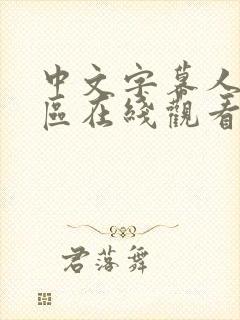 中文字幕人
區在綫觀看
君落舞